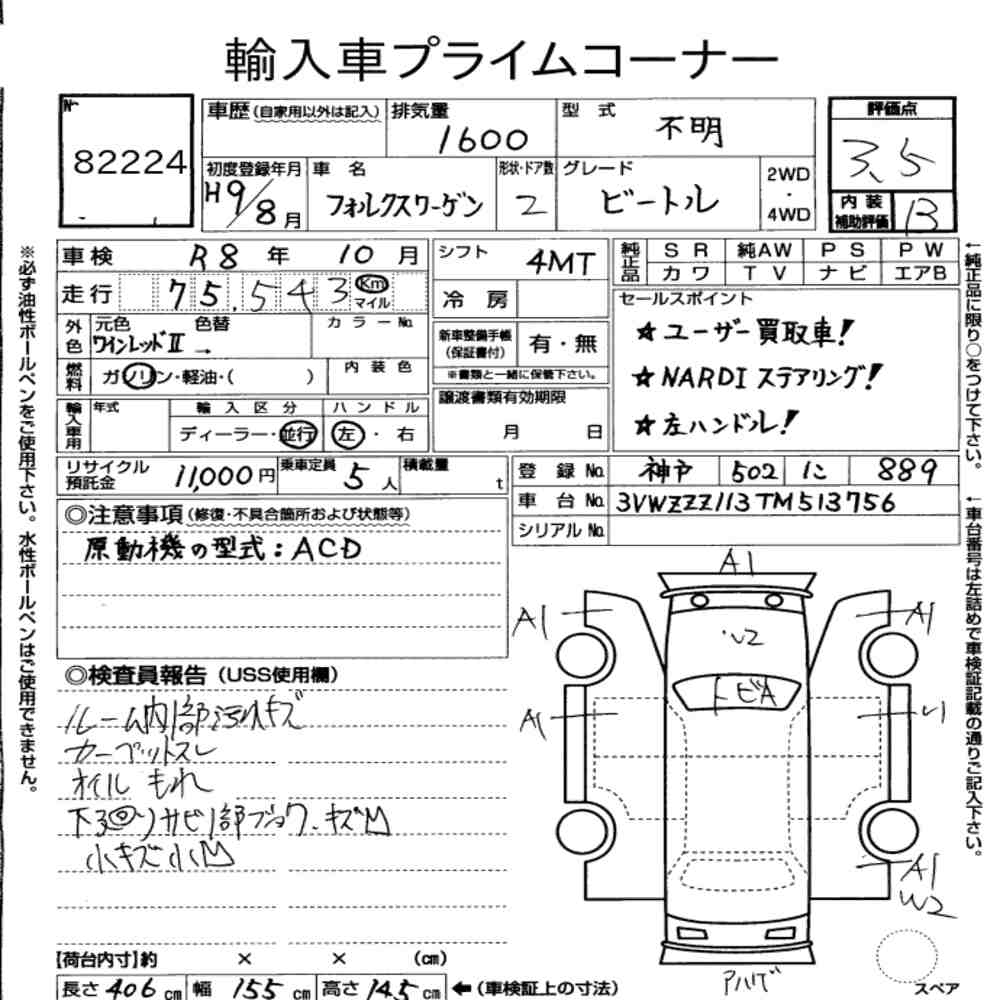 輸入車プライムコーナー
№
82224
車歴(自家用以外は記入)
排気量
1600
型 式
不明
評価点
3.5
初度登録年月
H9/8月
車 名
フォルクスワーゲン
形状・ドア数
2
グレード
ビートル
2WD
・
4WD
内 装
補助評価
B
車検 R8 年 10 月
シフト
4MT
純正品
SR 純AW PS PW
カワ TV ナビ エアB
走行 75,543 Km
マイル
冷 房
セールスポイント
★ユーザー買取車!
★NARDIステアリング!
★左ハンドル!
外色
元色 色替
ワインレッドⅡ →
カラーNo.
新車整備手帳
(保証書付)
有・無
※書類と一緒に保管下さい。
燃料
ガソリン・軽油・( )
内 装 色
譲渡書類有効期限
月 日
輸入車用
年式
輸 入 区 分
ディーラー・並行
ハ ン ド ル
左 ・ 右
リサイクル
預託金
11,000円
乗車定員
5人
積載量
t
登 録 No. 神戸 502 に 889
車 台 No. 3VWZZZ113TM513756
シリアル No.
◎注意事項(修復・不具合箇所および状態等)
原動機の型式:ACD
◎検査員報告(USS使用欄)
ルーム内1部汚れキズ
カーペットスレ
オイルもれ
下廻りサビ1部
小キズ小凹
A1
A1
A1
U2
トビA
A1
U1
A1
W2
スペア
【荷台内寸】約 × × (cm)
長さ 406 cm 幅 155 cm 高さ 145 cm ←(車検証上の寸法)
※必ず油性ボールペンをご使用下さい。水性ボールペンはご使用できません。
←純正品に限り○をつけて下さい。
←車台番号は左詰めで車検証記載の通りご記入下さい。